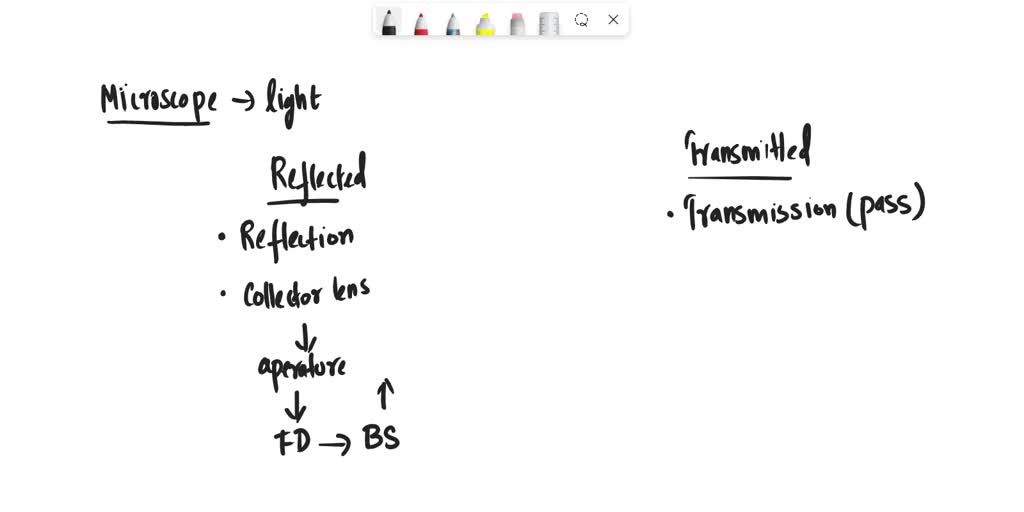 Microscope → light
Reflected
• Reflection
• Collector lens
↓
aperature
↓
FD → BS
↑
Transmitted
• Transmission (pass)